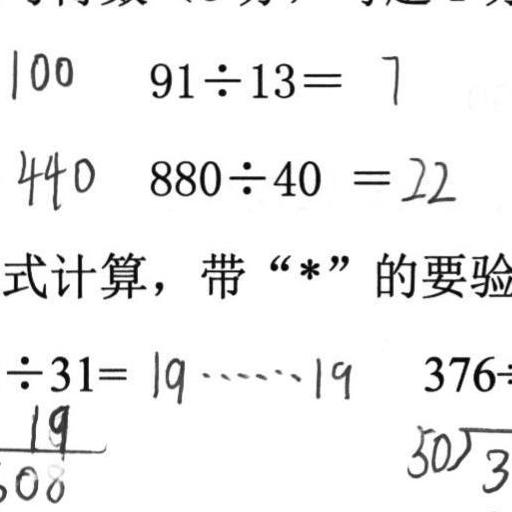 100 91÷13= 7
440 880÷40 =22
式计算，带“*”的要验
÷31= 19……19 376÷
19
608 50)3